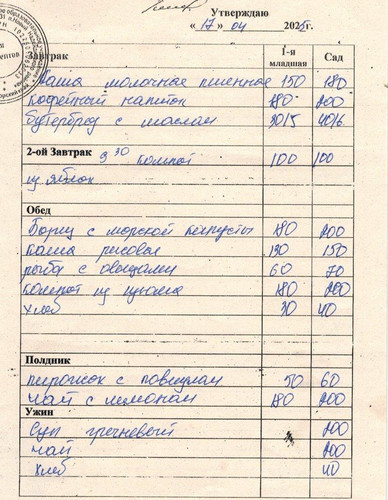 Утверждаю
« 17 » 04 2025г.
Завтрак 1-я младшая Сад
Каша молочная пшенная 150 180
кофейный напиток 180 200
бутерброд с маслом 30/5 40/6
2-ой Завтрак 9 30 компот 100 100
из яблок
Обед
Борщ с морской капусты 180 200
каша рисовая 130 150
рыба с овощами 60 70
компот из изюма 180 200
хлеб 30 40
Полдник
пирожок с повидлом 50 60
чай с лимоном 180 200
Ужин
Суп гречневый 200
чай 200
хлеб 40